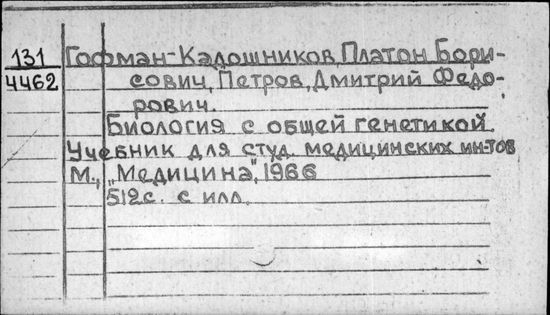 131 Гофман-Кадошников, Платон Бори-
4462 сович, Петров, Дмитрий Федо-
рович.
Биология с общей генетикой.
Учебник для студ. медицинских ин-тов
М., „Медицина", 1966
512с. с илл.